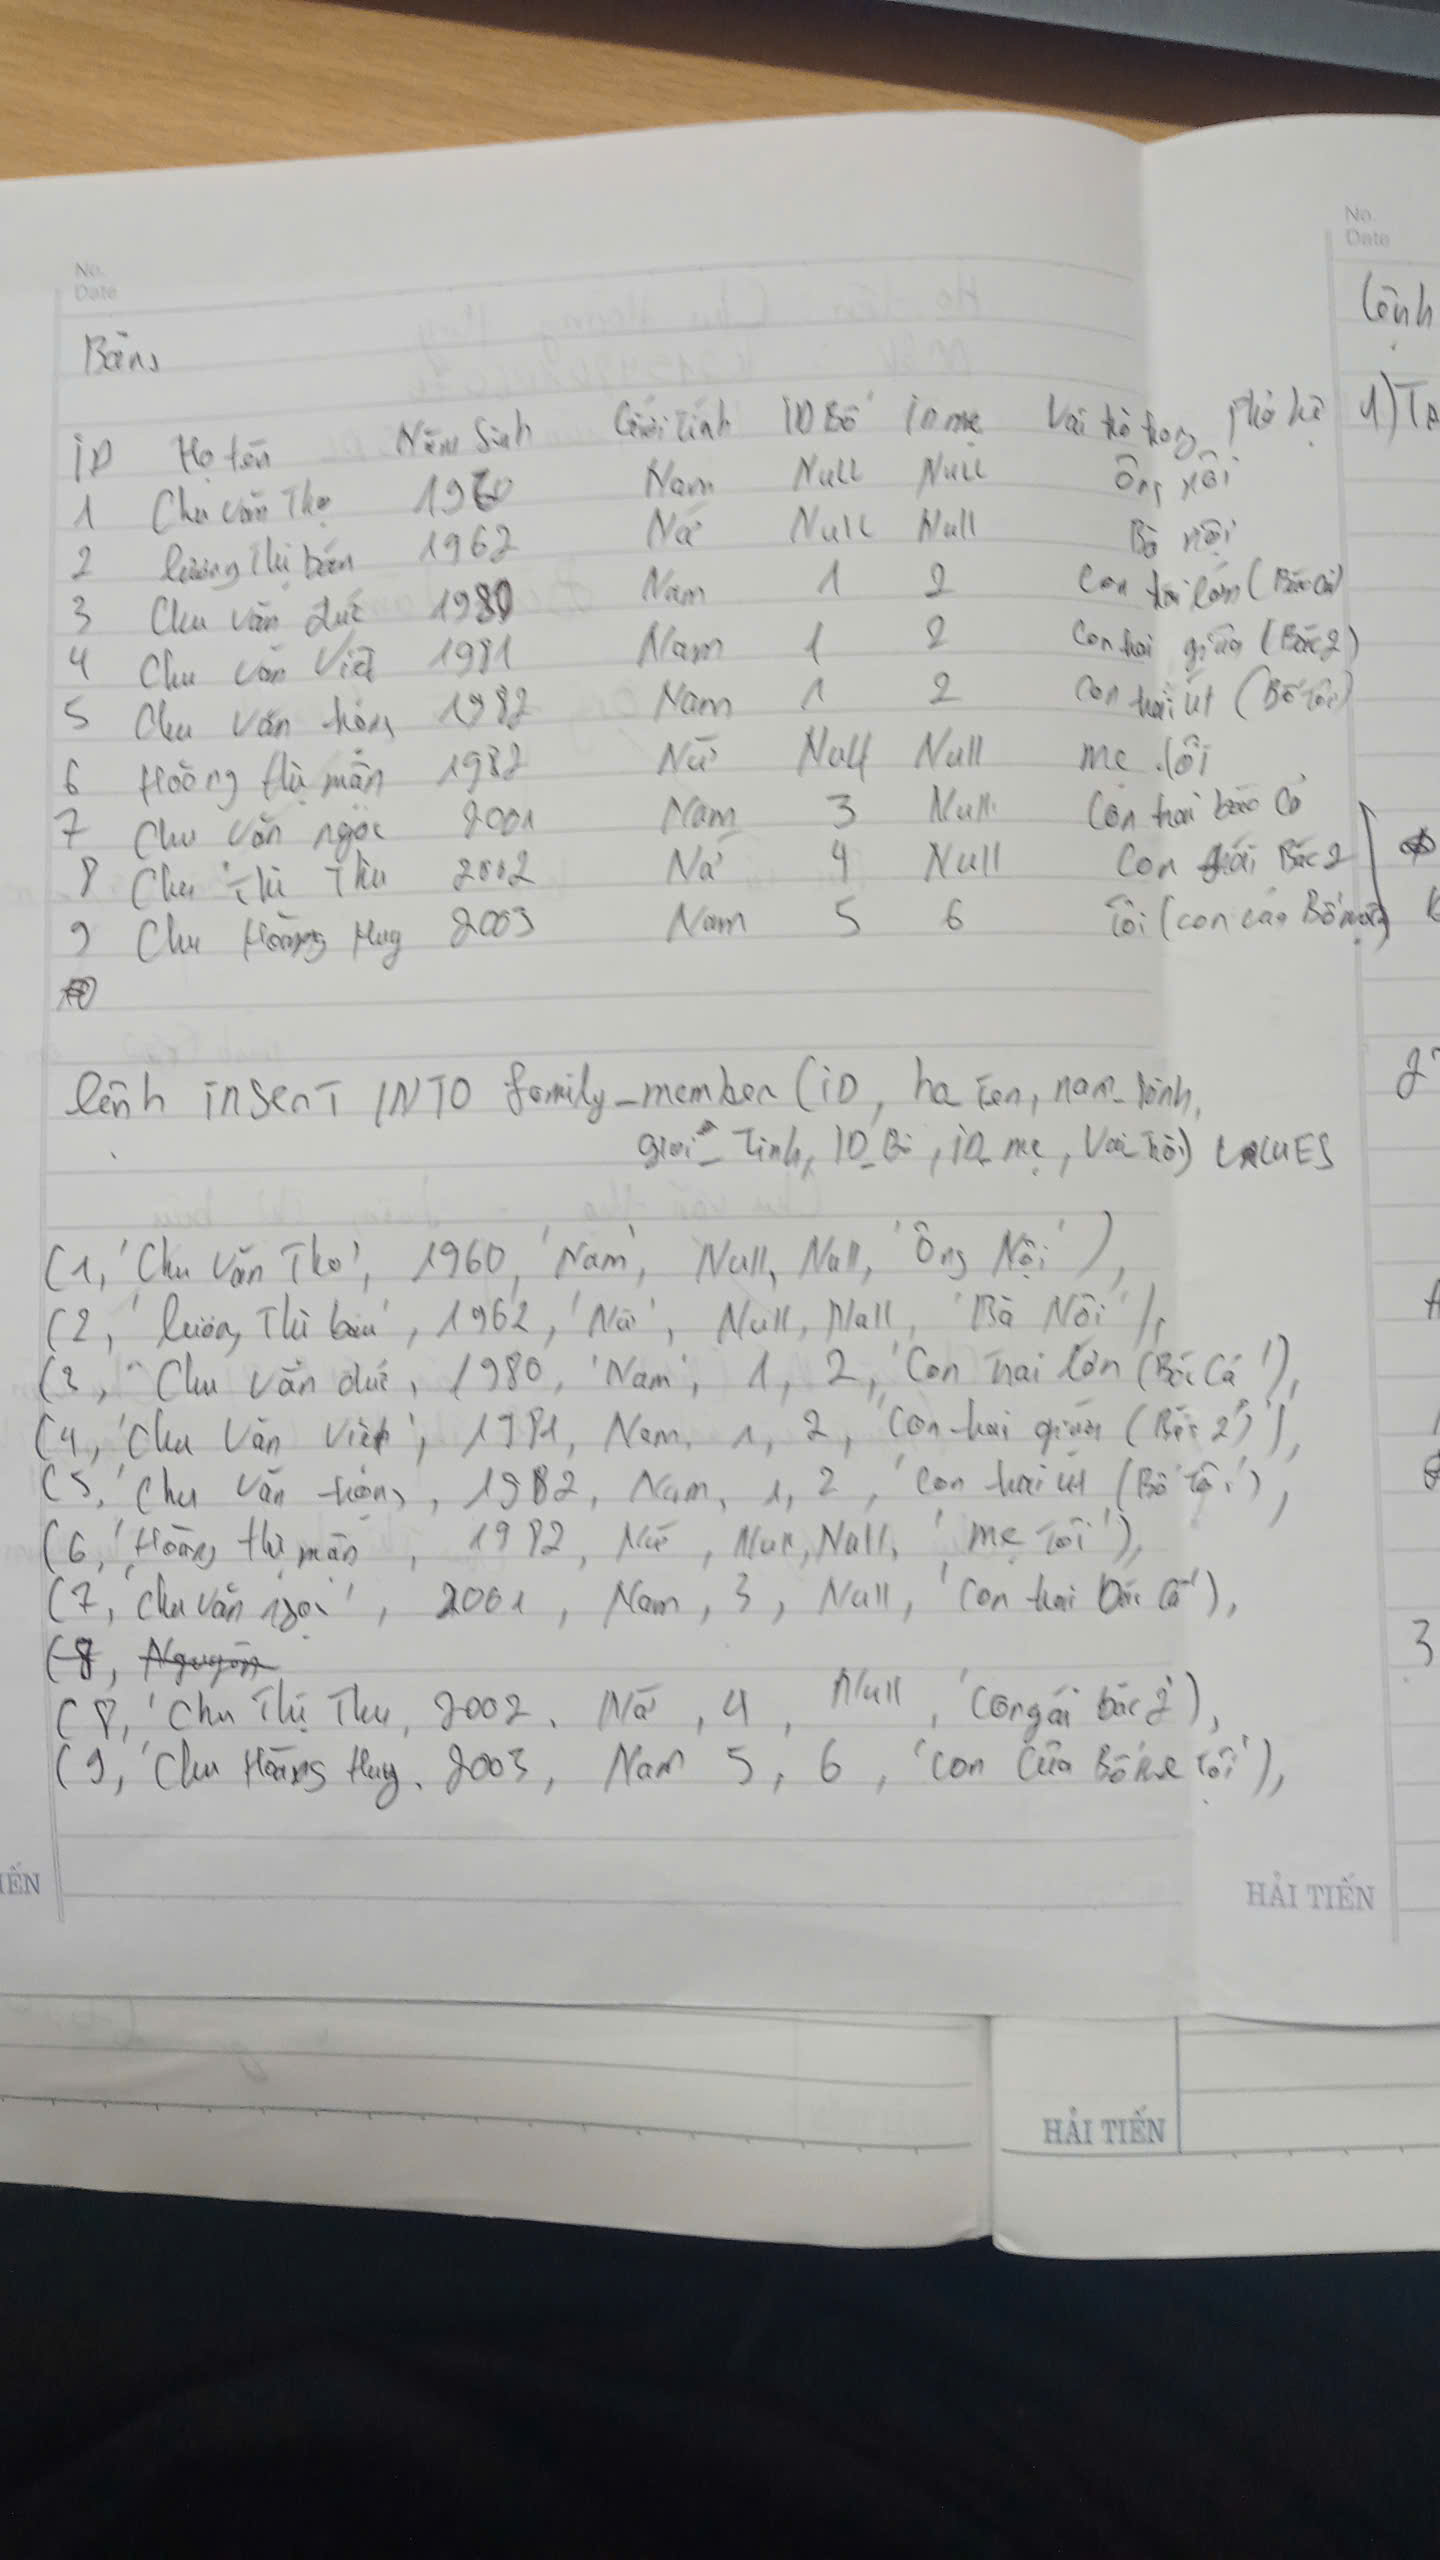 No.
Date
Bảng
ID Họ tên Năm Sinh Giới tính ID Bố ID mẹ Vai trò trong phả hệ
1 Chu văn Thọ 1960 Nam Null Null Ông nội
2 lương Thị 1962 Nữ Null Null Bà nội
3 Chu văn đức 1980 Nam 1 2 Con trai lớn (Bác cả)
4 Chu văn Việt 1981 Nam 1 2 Con trai giữa (Bác 2)
5 Chu văn 1982 Nam 1 2 Con trai út (Bố tôi)
6 Hoàng thị mận 1982 Nữ Null Null mẹ tôi
7 Chu văn ngọc 2001 Nam 3 Null Con trai bác cả
8 Chu Thị Thu 2002 Nữ 4 Null Con gái Bác 2
9 Chu Hoàng Huy 2003 Nam 5 6 Tôi (con của Bố mẹ)
lệnh insert INTO family_member (iD, ho ten, nam_sinh,
gioi_Tinh, ID_Bố, iD_mẹ, Vai Trò) VALUES
(1, 'Chu Văn Thọ', 1960, 'Nam', Null, Null, 'Ông Nội'),
(2, ' lương Thị , 1962, 'Nữ', Null, Null, 'Bà Nội'),
(3, " Chu văn đức, 1980, 'Nam', 1, 2, 'Con trai lớn (Bác Cả'),
(4, 'Chu Văn Việt', 1981, Nam, 1, 2, 'Con trai giữa (Bác 2)'),
(5, 'Chu Văn , 1982, Nam, 1, 2, 'Con trai út (Bố tôi'),
(6, 'Hoàng thị mận , 1982, Nữ, Null, Null, 'mẹ Tôi'),
(7, 'Chu văn ngọc', 2001, Nam, 3, Null, 'Con trai Bác Cả'),
(8, Nguyễn
(8, 'Chu Thị Thu, 2002, Nữ, 4, Null, 'Con gái bác 2'),
(9, 'Chu Hoàng Huy, 2003, Nam 5, 6, 'Con Của Bố mẹ tôi'),
IẾN
HẢI TIẾN
No.
Date
Lệnh
1)
2
3
HẢI TIẾN